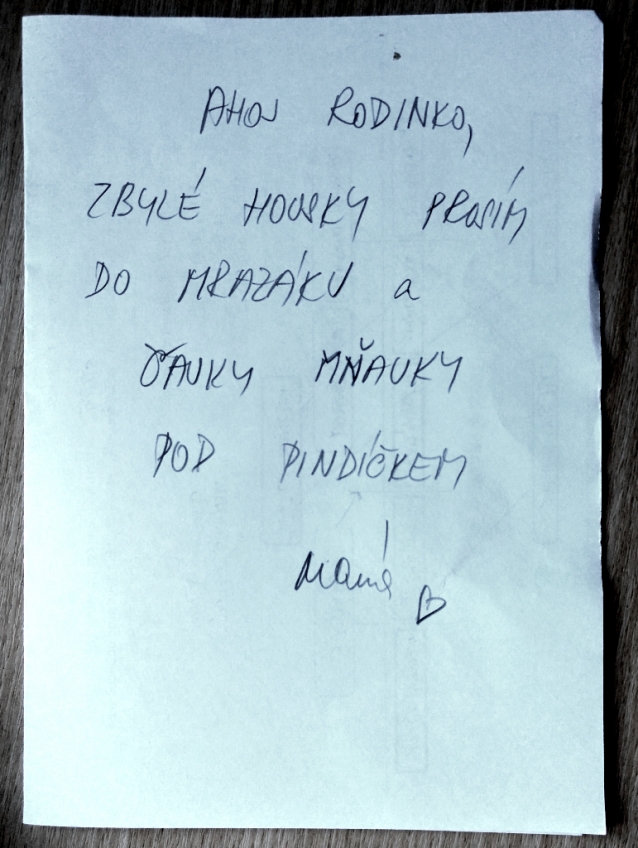 AHOJ RODINKO,
ZBYLÉ HOUSKY PROSÍM
DO MRAZÁKU a
ŤAUKY MŇAUKY
POD PINDÍČKEM
Mamá